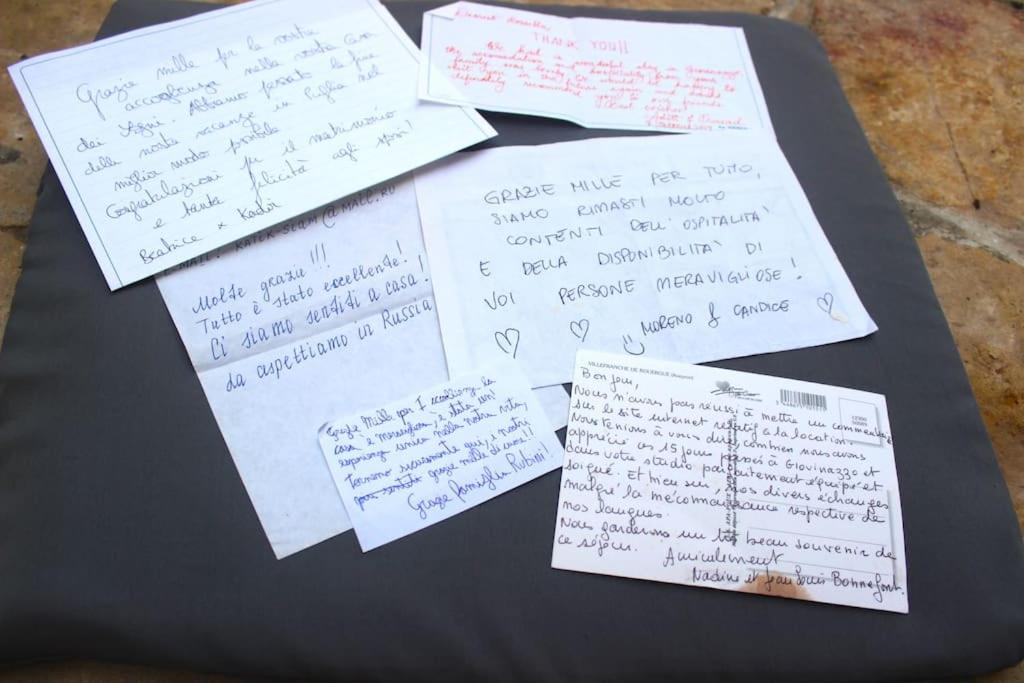 Grazie mille per la vostra
accoglienza nella vostra casa
dei sogni. Abbiamo passato la fine
della nostra vacanze in Puglia nel
miglior modo possibile.
Congratulazioni per il matrimonio
e tanta felicità agli sposi!
Beatrice x
Dearest
THANK YOU!!
We had a wonderful stay in Giovinazzo,
the accomodation is
family was lovely &
visit you in
definately recommend you to our friends.
E-MAIL: KATEK-SLAM@MAIL.RU
Molte grazie!!!
Tutto è stato eccellente!
Ci siamo sentiti a casa!
da aspettiamo in Russia
GRAZIE MILLE PER TUTTO,
SIAMO RIMASTI MOLTO
CONTENTI DELL'OSPITALITA'
E DELLA DISPONIBILITA' DI
VOI PERSONE MERAVIGLIOSE!
MORENO & CANDICE
Grazie mille per l'accoglienza la
casa è meravigliosa, è stata un'
esperienza unica nella nostra vita,
torneremo sicuramente qui, e
grazie mille di cuore!!
Grazie famiglia Rubini!
VILLEFRANCHE DE ROUERGUE (Aveyron)
Bonjour,
Nous n'avons pas réussi à mettre un commentaire
sur le site internet relatif à la location.
Nous tenions à vous dire combien nous avons
apprécié ces 15 jours passés à Giovinazzo et
dans votre studio parfaitement équipé et
soigné. Et bien sur, nos divers échanges
malgré la méconnaissance respective de
nos langues.
Nous garderons un très beau souvenir de
ce séjour. Amicalement
Nadine et Jean Louis Bonnefont.